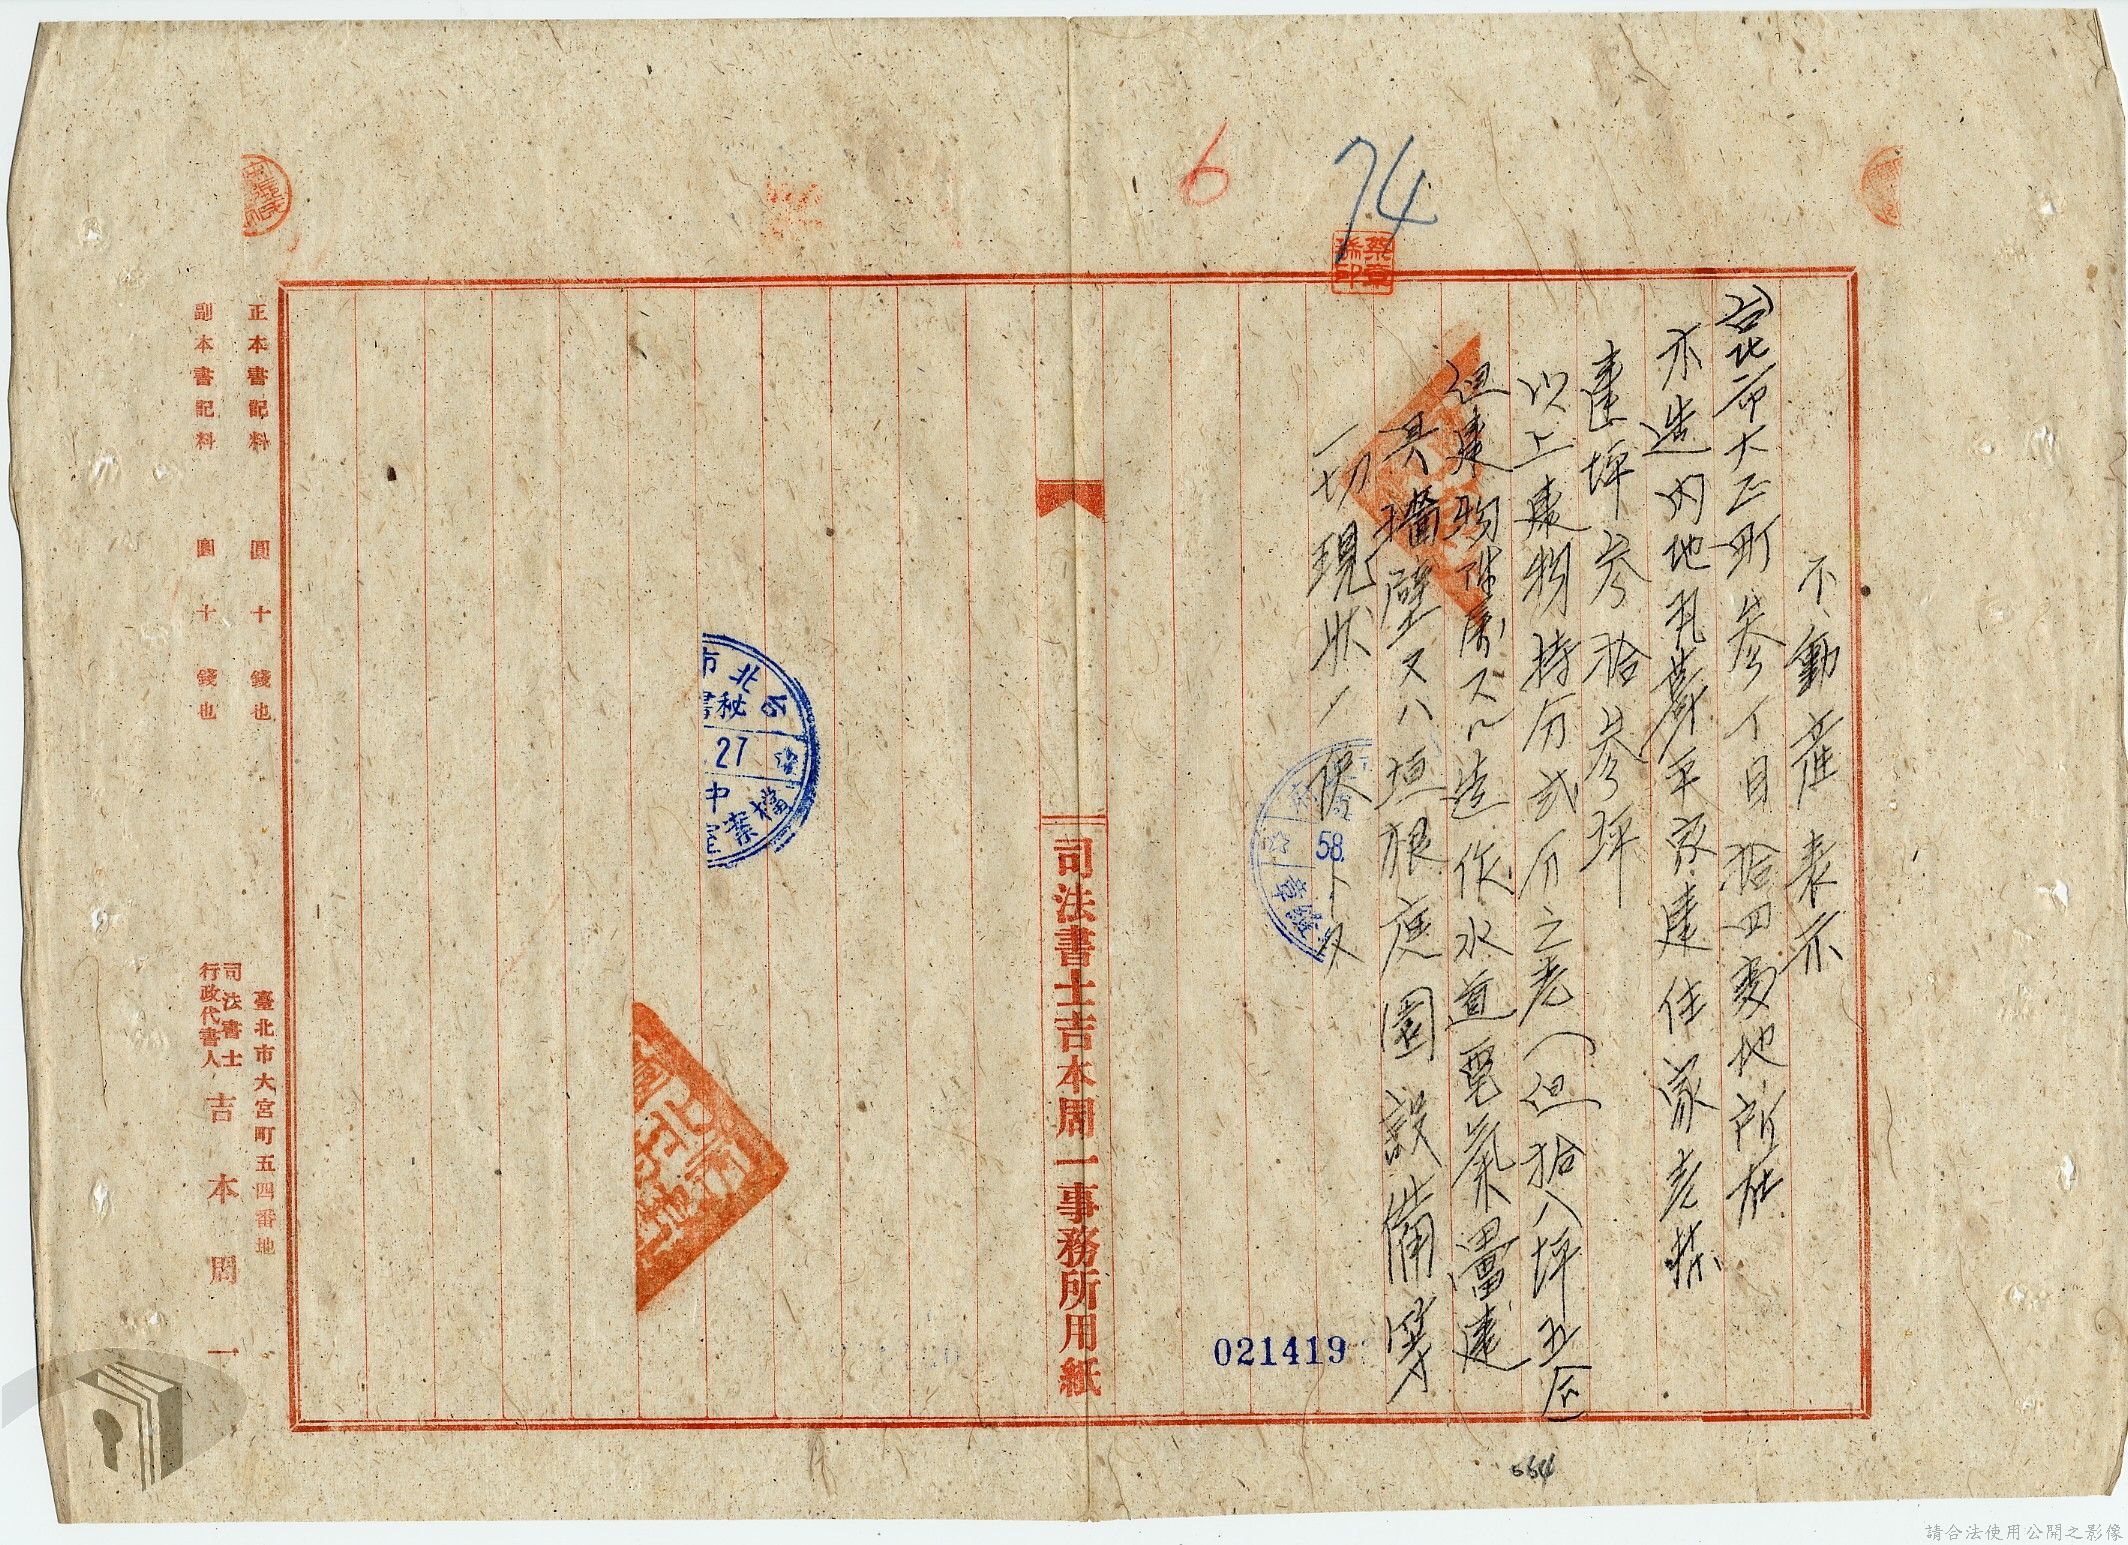 6
74
不動產表示
台北市大正町參丁目拾四番地所在
木造內地瓦葺平家建住家壱棟
建坪參拾參坪
以上建物持分弍分之壱(但拾八坪五合)
但建物附属又ハ造作水道電氣畳建
具牆壁又ハ垣根庭園設備等
一切現狀ノ儘
021419
司法書士吉本周一事務所用紙
台北市
秘書
.27
中
檔案室
58.
章
正本書記料 圓十錢也
副本書記料 圓十錢也
臺北市大宮町五四番地
司法書士
行政代書人
吉本周一
554
請合法使用公開之影像